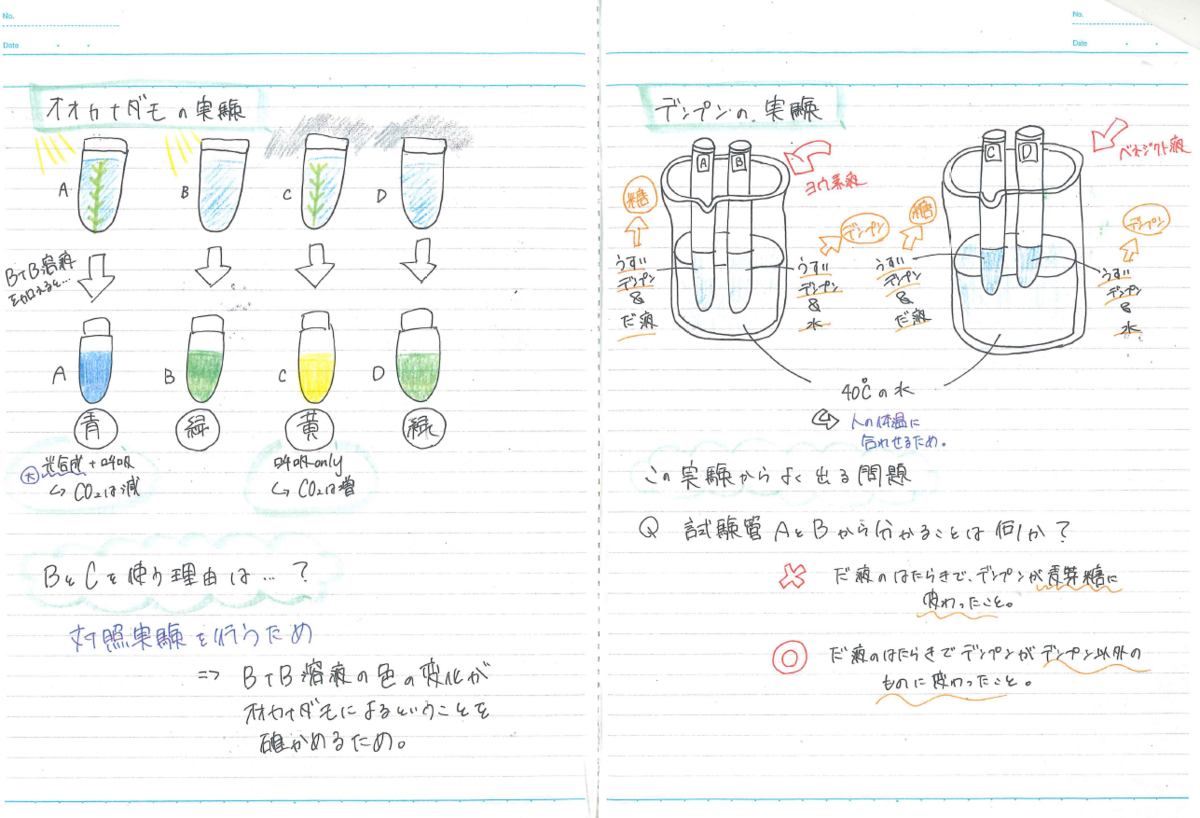 No.
Date
オオカナダモの実験
A
B
C
D
BTB溶液
を加えると…
A
B
C
D
青
緑
黄
緑
大 光合成 + 呼吸
↳ CO₂は減
呼吸only
↳ CO₂は増
BとCを使う理由は…?
対照実験を行うため
⇒ BTB溶液の色の変化が
オオカナダモによるということを
確かめるため。
No.
Date
デンプンの実験
A
B
ヨウ素液
糖
うすい
デンプン
&
だ液
デンプン
うすい
デンプン
&
水
C
D
ベネジクト液
糖
うすい
デンプン
&
だ液
デンプン
うすい
デンプン
&
水
40℃の水
人の体温に
合わせるため。
この実験からよく出る問題
Q 試験管AとBから分かることは何か?
× だ液のはたらきで、デンプンが麦芽糖に
変わったこと。
◎ だ液のはたらきでデンプンがデンプン以外の
ものに変わったこと。